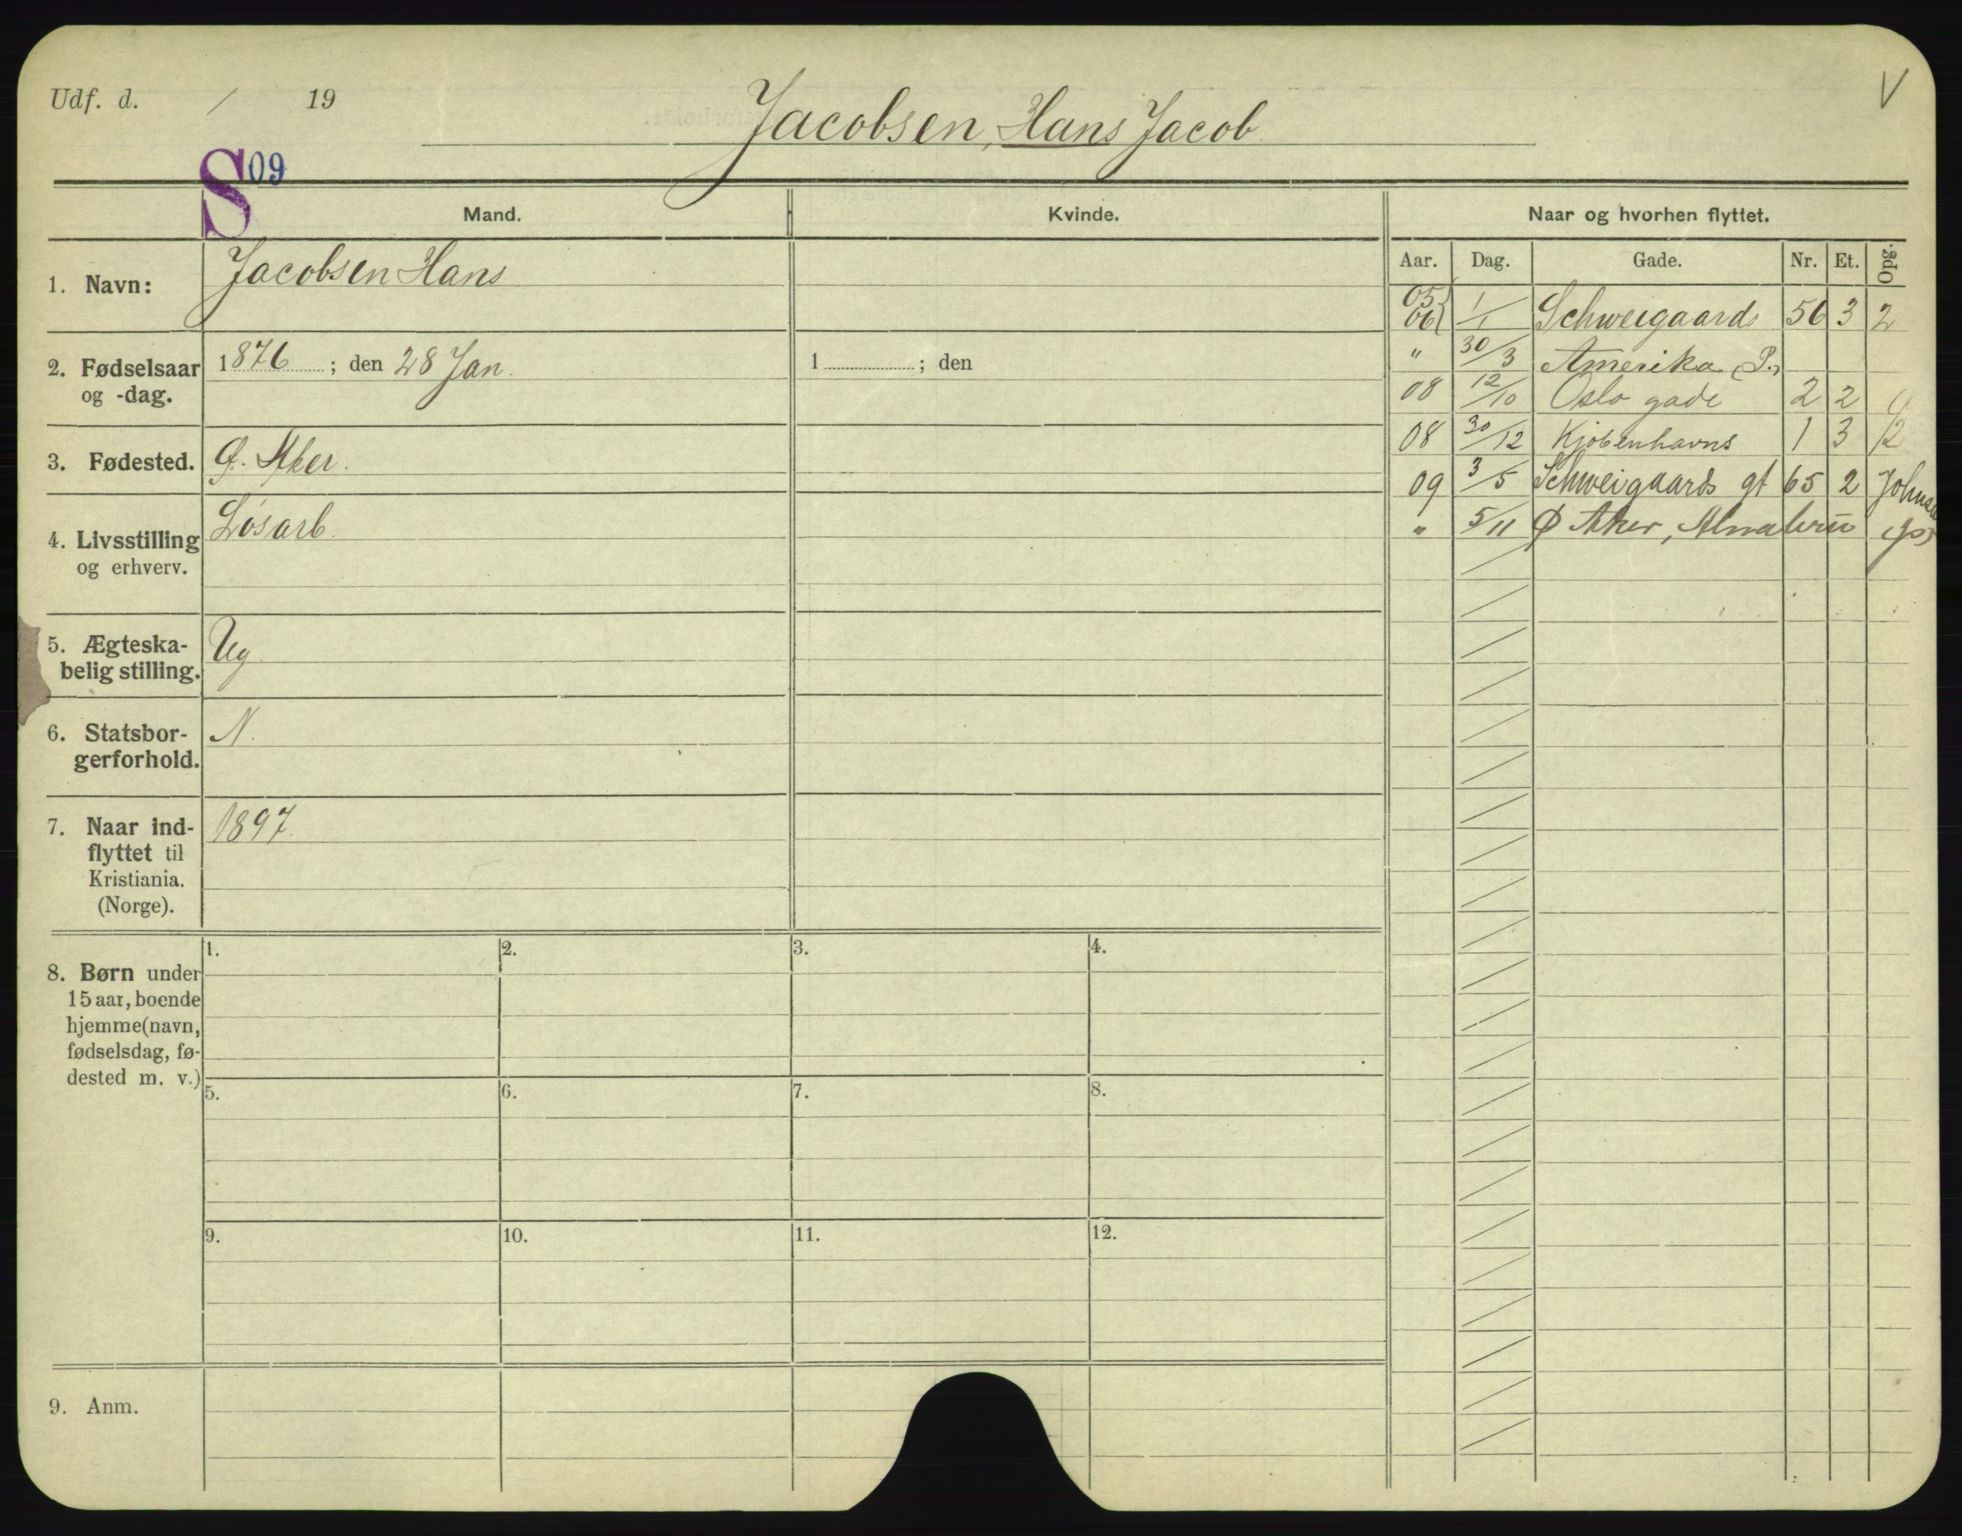 Udf. d. / 19
Jacobsen, Hans Jacob
V
S 09
Mand. Kvinde. Naar og hvorhen flyttet.
Aar. Dag. Gade. Nr. Et. Opg.
1. Navn: Jacobsen Hans
2. Fødselsaar og -dag. 1876 ; den 28 Jan.
1 ; den
3. Fødested. Ø. Aker.
4. Livsstilling og erhverv. Løsarb.
5. Ægteska-
belig stilling. Ug.
6. Statsbor-
gerforhold. N.
7. Naar ind-
flyttet til
Kristiania.
(Norge). 1897.
05
06 } 1/1 Schweigaards 56 3 2
" 30/3 Amerika (P.)
08 12/10 Oslo gade 2 2
08 30/12 Kjøbenhavns 1 3
09 3/5 Schweigaards gt 65 2
" 5/11 Ø Aker, Alnabru
8. Børn under
15 aar, boende
hjemme (navn,
fødselsdag, fø-
dested m. v.)
1. 2. 3. 4.
5. 6. 7. 8.
9. 10. 11. 12.
9. Anm.